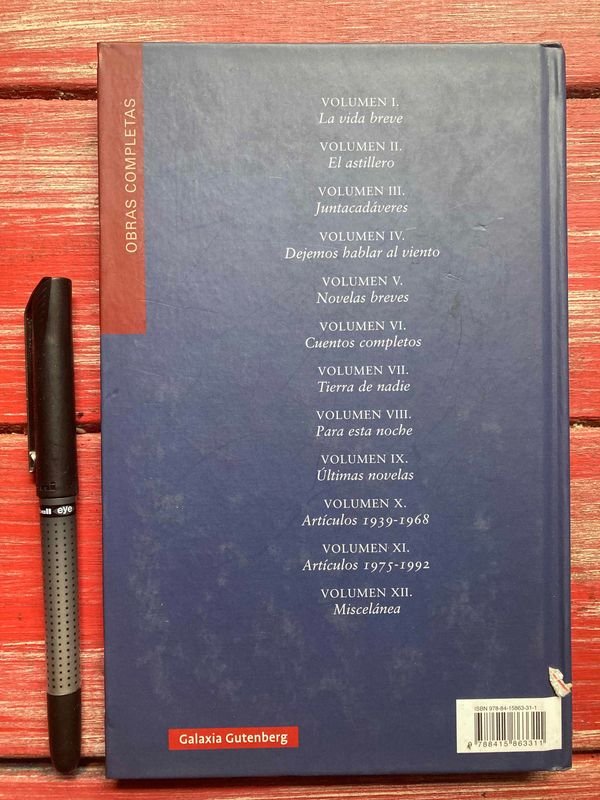 OBRAS COMPLETAS
VOLUMEN I.
La vida breve
VOLUMEN II.
El astillero
VOLUMEN III.
Juntacadáveres
VOLUMEN IV.
Dejemos hablar al viento
VOLUMEN V.
Novelas breves
VOLUMEN VI.
Cuentos completos
VOLUMEN VII.
Tierra de nadie
VOLUMEN VIII.
Para esta noche
VOLUMEN IX.
Últimas novelas
VOLUMEN X.
Artículos 1939-1968
VOLUMEN XI.
Artículos 1975-1992
VOLUMEN XII.
Miscelánea
eye
Galaxia Gutenberg
ISBN 978-84-15863-31-1
9 788415 863311